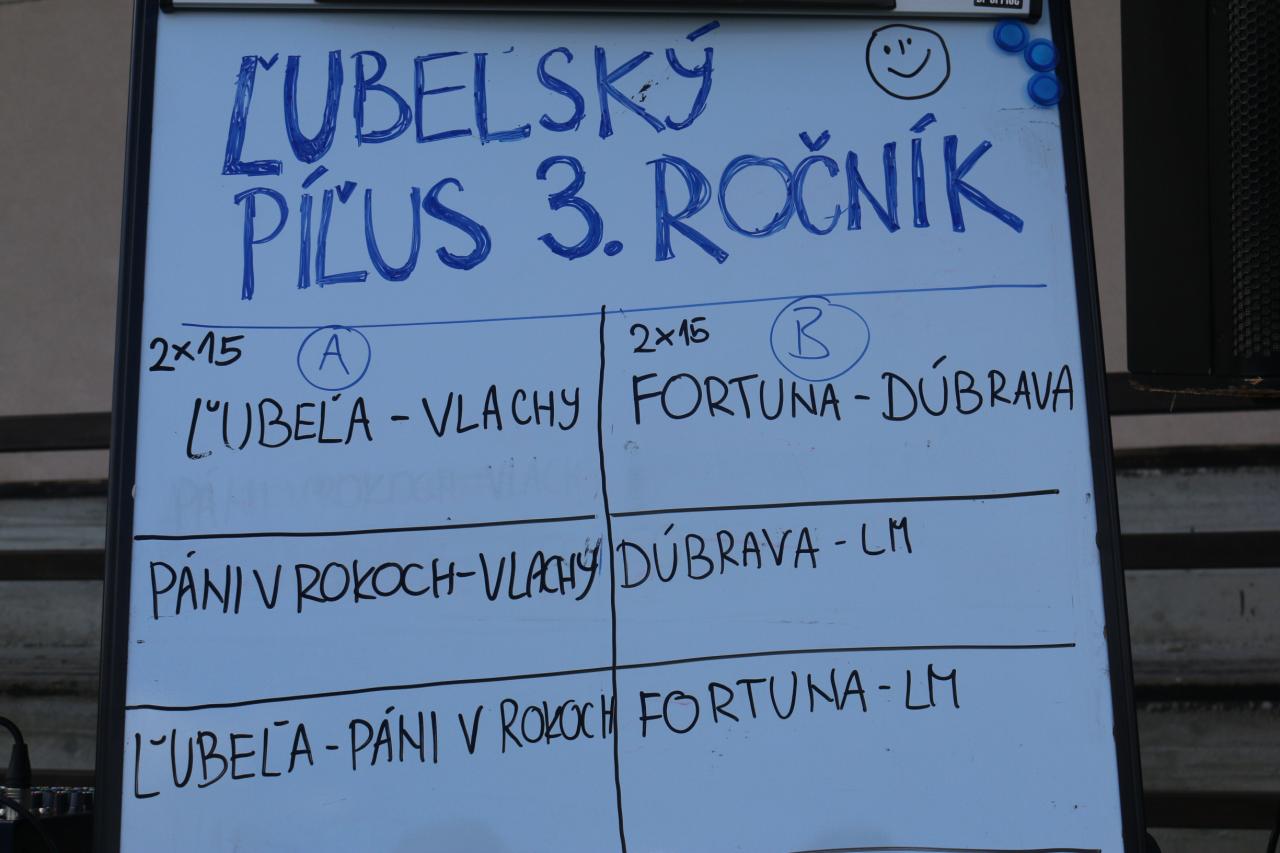 ĽUBEĽSKÝ
PÍĽUS 3. ROČNÍK
2×15 A
ĽUBEĽA - VLACHY
PÁNI V ROKOCH-VLACHY
ĽUBEĽA-PÁNI V ROKOCH
2×15 B
FORTUNA - DÚBRAVA
DÚBRAVA - LM
FORTUNA - LM